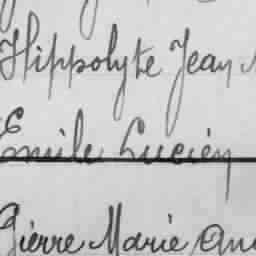 Hippolyte Jean
Emile Lucien
Pierre Marie